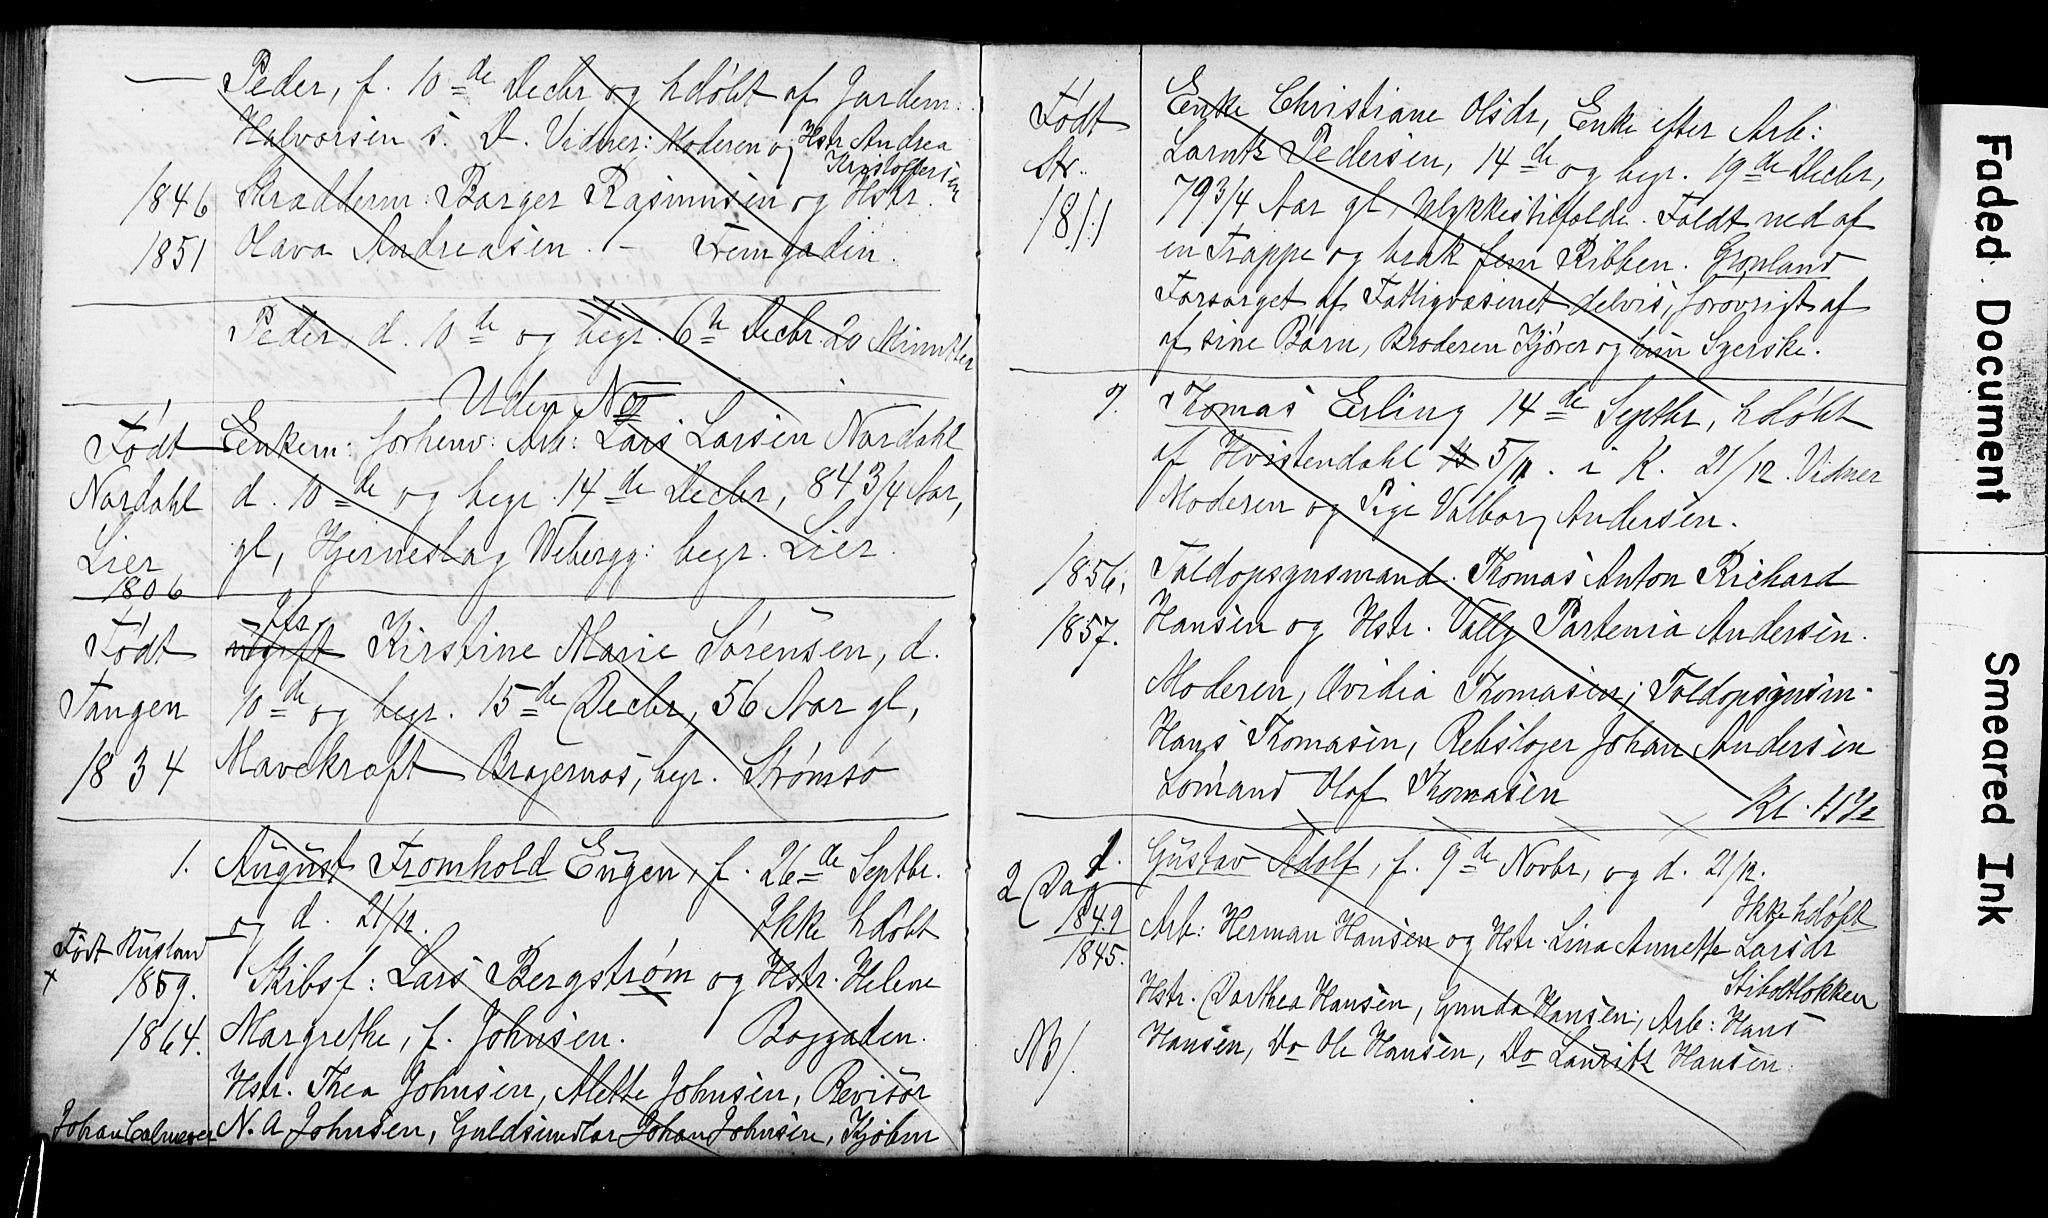 Peder, f. 10de Decbr og hdøbt af Jordem:
Halvorsen s. D. Vidner: Moderen og Hstr Andrea
Kristoffersen
1846 Skrædderm: Barger Rasmusen og Hstr.
1851 Olava Andreasen. – Tremgaden.
Peder, d. 10de og begr. 6te Decbr 20 Minutter
Uden No
Født Enkem: forhenv: Arb: Lars Larsen Nordahl
Nordahl d. 10de og begr. 14de Decbr, 84 3/4 Aar,
Lier gl, Hjerneslag Webergg: begr. Lier.
1806
Født ugift Kirstine Marie Sørensen, d.
Tangen 10de og begr. 15de Decbr, 56 Aar gl,
1834 Mavekræft Bragernæs, begr. Strømsø
1. August Fromhold Eugen, f. 26de Septbr.
og d. 21/12. Ikke hdøbt
Født Rusland
x 1859. Skibsf: Lars Bergstrøm og Hstr. Helene
1864. Margrethe, f. Johnsen. Boggaden.
Hstr. Thea Johnsen, Alette Johnsen, Revisor
Johan Calmeyer N. A Johnsen, Guldsmedlar Johan Johnsen, Kjøbm
Født Enke Christiane Olsdr, Enke efter Arb:
Str. Larntz Pedersen, 14de og begr. 19de Decbr,
1811 79 3/4 Aar gl, Ulykkestilfælde. Faldt ned af
en Trappe og brak fem Ribben. Grønland
Forsørget af Fattigvæsenet delvis, forøvrigt af
af sine Børn, Broderen Kjører og hun Syerske.
7. Thomas Erling 14de Septbr, hdøbt
af Hvistendahl 5/11. i K. 21/12. Vidner
Moderen og Pige Valborg Andersen.
1856, Toldopsynsmand. Thomas Anton Richard
1857. Hansen og Hstr. Vally Partenia Andersen.
Moderen, Ovidia Thomasen, Toldopsynsm.
Hans Thomasen, Rebslager Johan Andersen
Sømand Olaf Thomasen
Kl. 11 1/2
1. Gustav Adolf, f. 9de Novbr, og d. 21/12.
2 Dag Ikke hdøbt
1849 Arb: Herman Hansen og Hstr. Lina Annette Larsdr
1845. Stiboltløkken
Hstr. Dorthea Hansen, Gunda Hansen, Arb: Hans
NB/. Hansen, Do Ole Hansen, Do Lauritz Hansen.
Faded Document
Smeared Ink